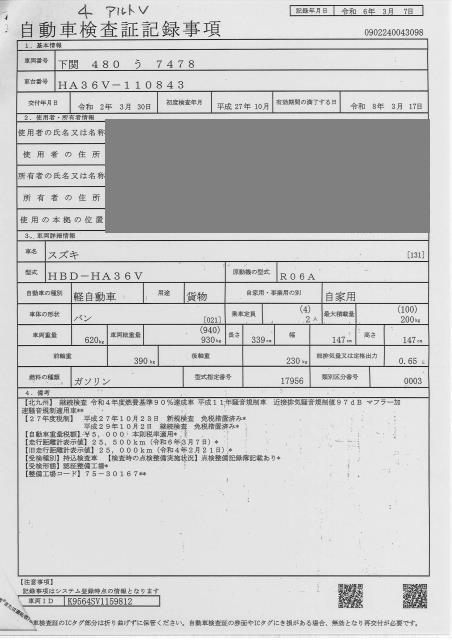 4 アルトV
記録年月日 令和 6年 3月 7日
自動車検査証記録事項
0902240043098
1. 基本情報
車両番号 下関 480 う 7478
車台番号 HA36V-110843
交付年月日 令和 2年 3月 30日 初度検査年月 平成 27年 10月 有効期間の満了する日 令和 8年 3月 17日
2. 使用者・所有者情報
使用者の氏名又は名称
使用者の住所
所有者の氏名又は名称
所有者の住所
使用の本拠の位置
3. 車両詳細情報
車名 スズキ [131]
型式 HBD-HA36V 原動機の型式 R06A
自動車の種別 軽自動車 用途 貨物 自家用・事業用の別 自家用
車体の形状 バン [021] 乗車定員 (4) 2人 最大積載量 (100) 200kg
車両重量 620kg 車両総重量 (940) 930kg 長さ 339cm 幅 147cm 高さ 147cm
前軸重 390kg 後軸重 230kg 総排気量又は定格出力 0.65L
燃料の種類 ガソリン 型式指定番号 17956 類別区分番号 0003
4. 備考
【北九州】 継続検査 令和4年度燃費基準90%達成車 平成11年騒音規制車 近接排気騒音規制値97dB マフラー加
速騒音規制適用車**
【27年度税制】 平成27年10月23日 新規検査 免税措置済み*
平成29年10月2日 継続検査 免税措置済み*
【自動車重量税額】¥5,000 本則税率適用*
【走行距離計表示値】25,500km(令和6年3月7日)*
【旧走行距離計表示値】25,000km(令和4年2月21日)*
【受検種別】持込検査車 【検査時の点検整備実施状況】点検整備記録簿記載あり*
【受検形態】認証整備工場*
【整備工場コード】75-30167**
【注意事項】
記録事項はシステム登録時点の情報となります
車両ID K9564SV1159812
車検査証のICタグ部分は折り曲げずに保管ください。自動車検査証の券面やICタグにき損がある場合、無効となり再交付が必要です。